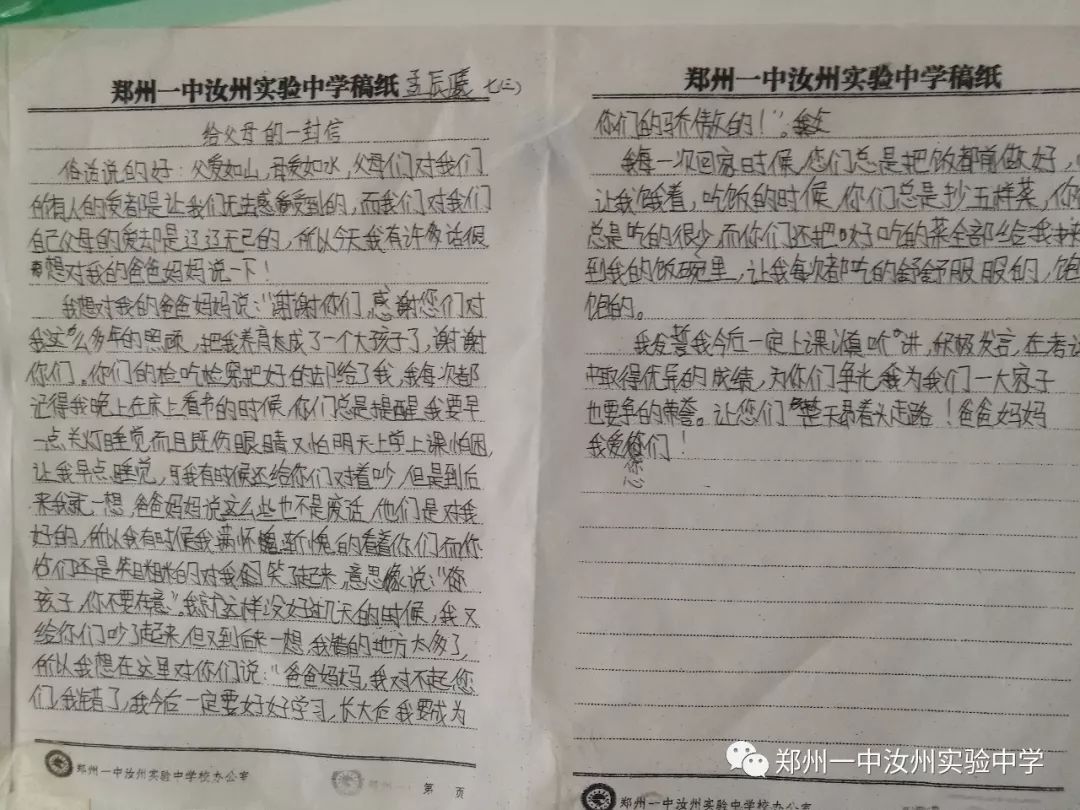 郑州一中汝州实验中学稿纸 孟辰曦 七(三)
给父母的一封信
俗话说的好：父爱如山，母爱如水，父母们对我们
所有人的爱都是让我们无法感受到的，而我们对我们
自己父母的爱却是辽辽无已的，所以今天我有许多话很
想对我的爸爸妈妈说一下！
我想对我的爸爸妈妈说："谢谢你们，感谢您们对
我这么多年的照顾，把我养育成了一个大孩子了，谢谢
你们。你们的捡吃捡穿把好的却给了我，我每次都
记得我晚上在床上看书的时候，你们总是提醒我要早
一点关灯睡觉，而且既伤眼睛又怕明天上学上课怕困，
让我早点睡觉，可我有时候还给你们对着吵，但是到后
来我就一想，爸爸妈妈说这么些也不是废话，他们是对我
好的，所以我有时候我满怀惭愧的看着你们，而你
们还是笑眯眯的对我笑了起来，意思像说："你
孩子，你不要在意"。我就这样没好过几天的时候，我又
给你们吵了起来，但又到后来一想，我错的地方太多了，
所以我想在这里对你们说："爸爸妈妈，我对不起您
们，我错了，我今后一定要好好学习，长大后我要成为
郑州一中汝州实验中学校办公室
第 页
郑州一中汝州实验中学稿纸
你们的骄傲的！"。
我每一次回家时候，您们总是把饭都前做好，
让我饿着，吃饭的时候，你们总是抄五样菜，你
总是吃的很少，而你们还把好吃的菜全部给我
到我的饭碗里，让我每次都吃的舒舒服服的，饱
饱的。
我发誓我今后一定上课认真听讲，积极发言，在考试
中取得优异的成绩，为你们争光，我为我们一大家子
也要争的荣誉。让您们整天昂着头走路！爸爸妈妈
我爱你们！
郑州一中汝州实验中学校办公室
郑州一中汝州实验中学